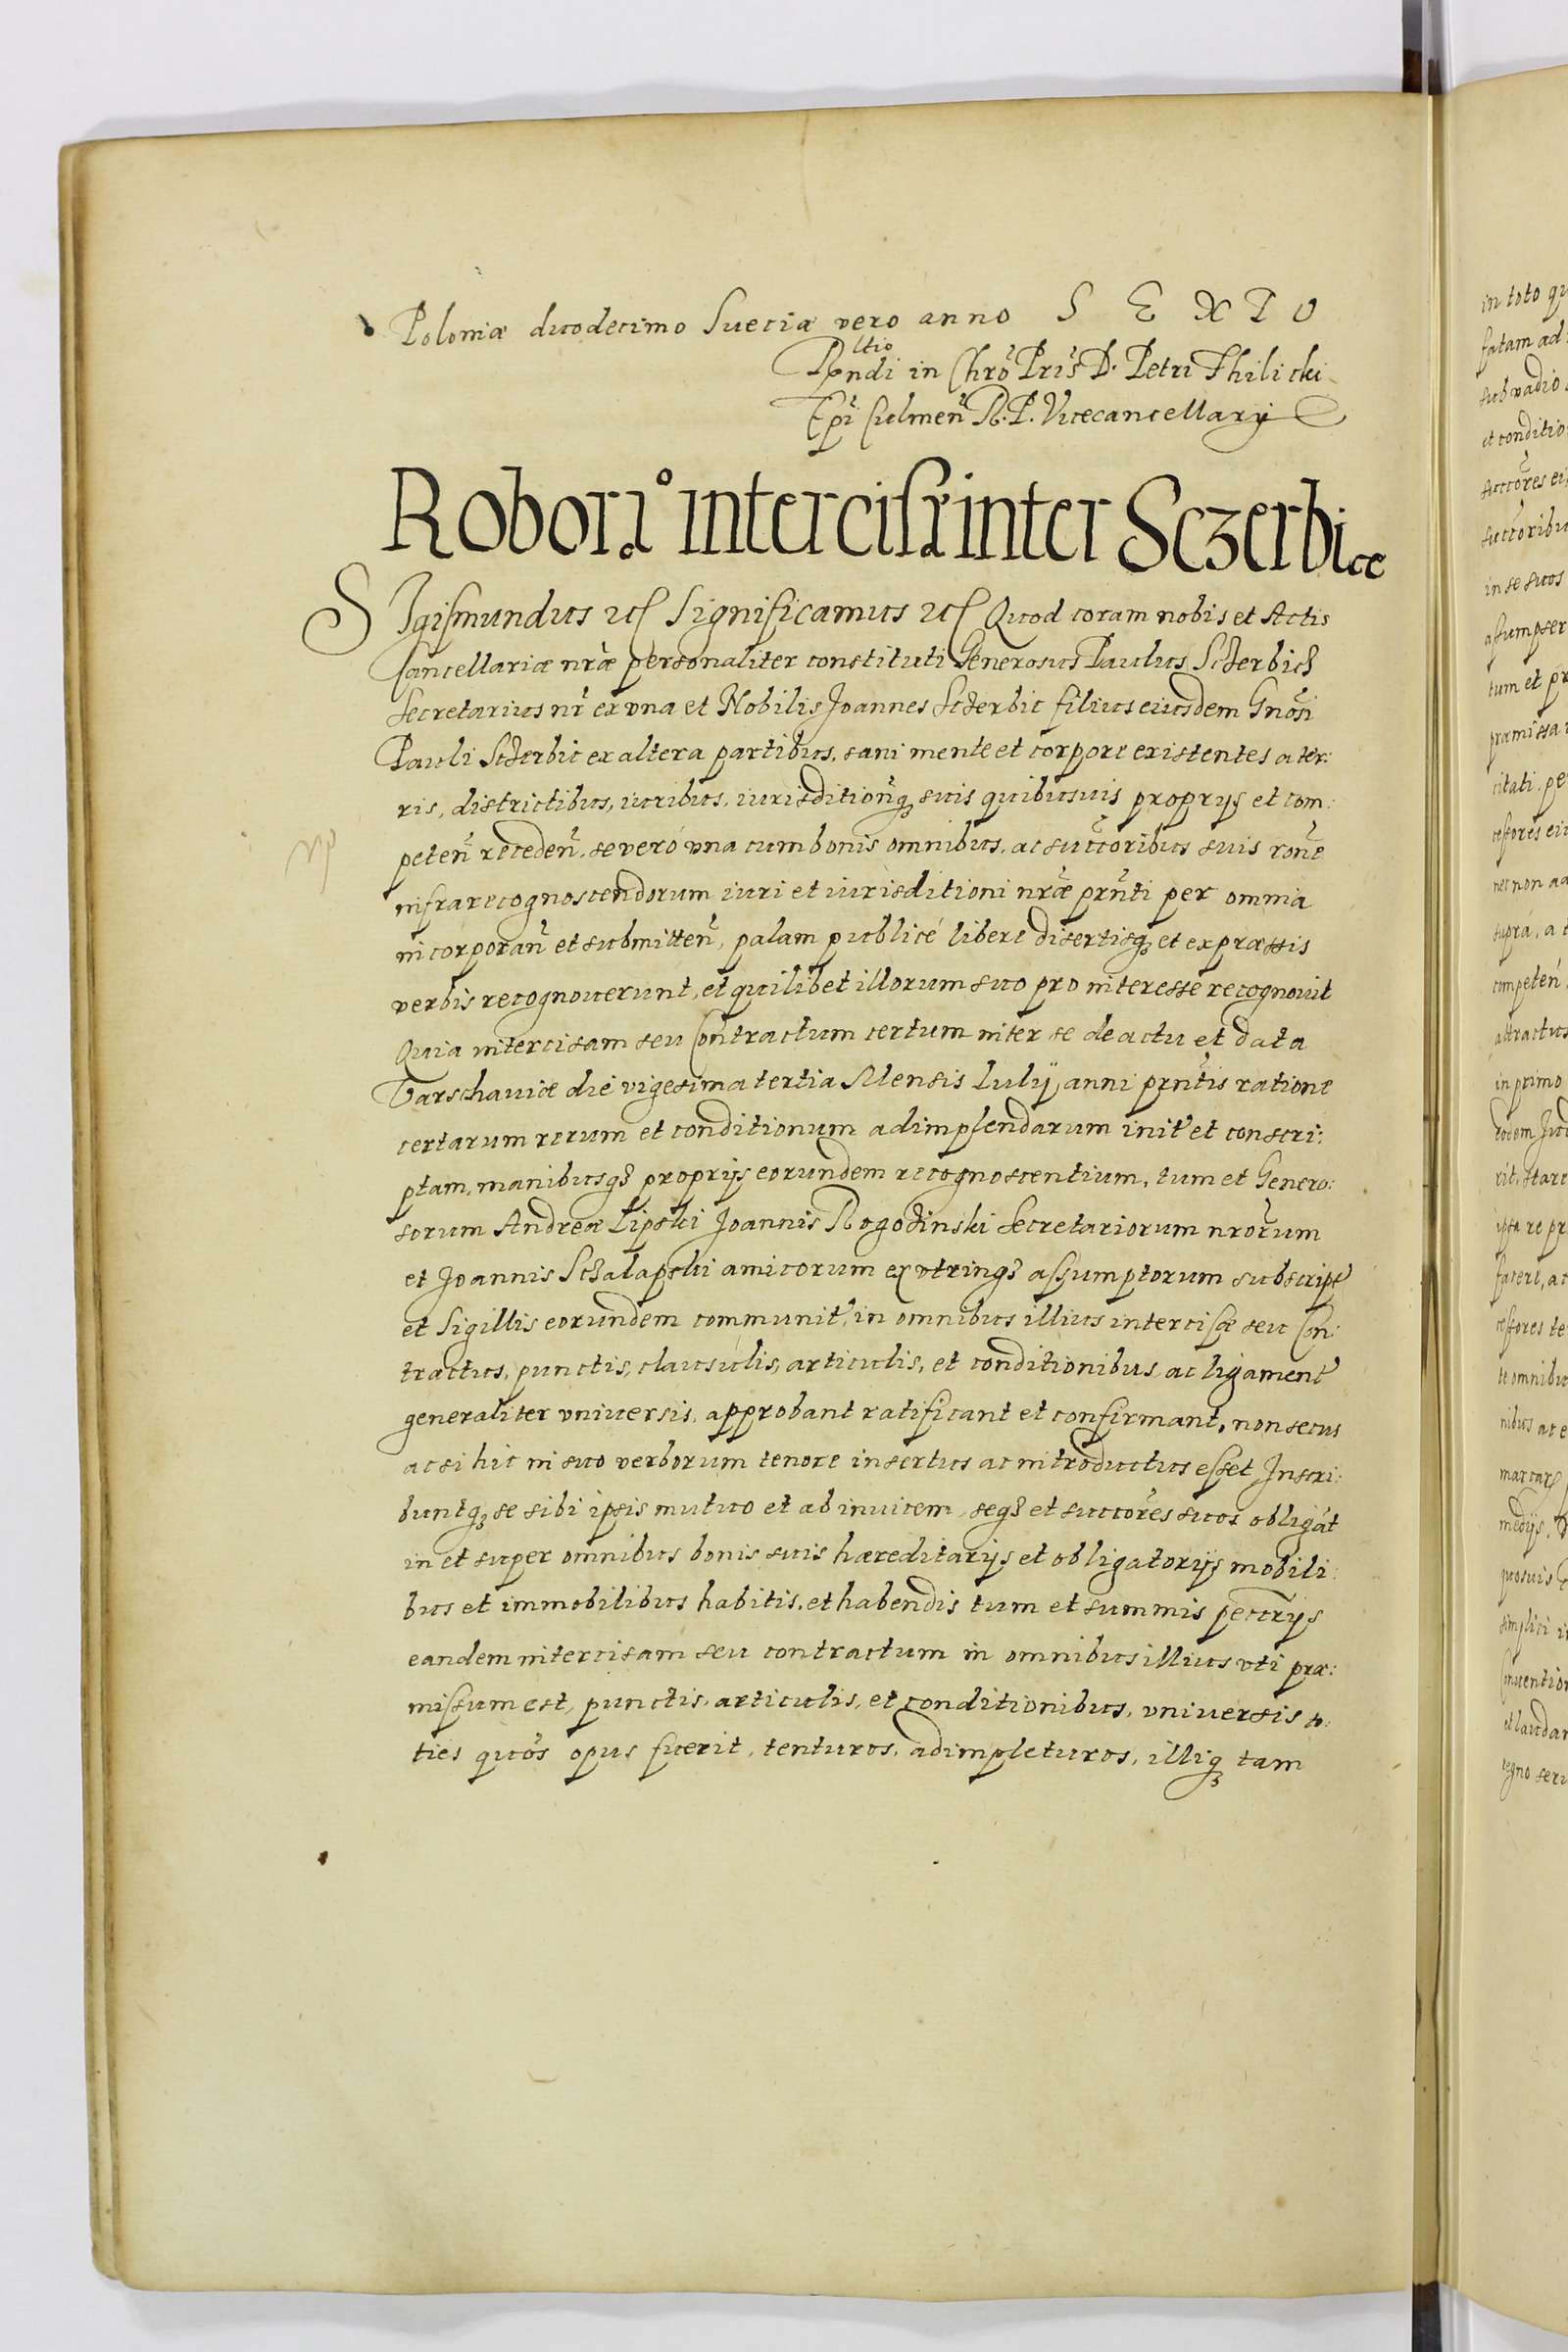 Poloniæ duodecimo Sueciæ vero anno S E X T O
Rltio
Rndi in Chrō Pris D. Petri Thilicki
Epi Culmen̄ R. P. Vicecancellarÿ
Robora͡o intercisæ inter Sczerbice
SIgismundus etc Significamus etc Quod coram nobis et Actis
Cancellariæ nr̃æ personaliter constituti Generosus Paulus Sczerbicz
Secretarius nr̃ ex vna et Nobilis Joannes Sczerbic filius eiusdem Gnosi
Pauli Sczerbic ex altera partibus, sani mente et corpore existentes a ter:
ris, districtibus, iuribus, iurisditionq̃ȝ suis quibusuis proprijs et com:
peten̄ receden̄, se veró vna cum bonis omnibus, ac succ̃oribus suis rõne
infrarecognoscendorum iuri et iurisditioni nr̃æ prñti per omnia
incorporan̄ et submitten̄, palam publicé libere disertisqȝ et expræssis
verbis recognouerunt, et quilibet illorum suo pro interesse recognouit
Quia intercisam seu Contractum certum inter se de actu et data
Varschauiæ die vigesima tertia Mensis Iulij anni prñtis ratione
certarum rerum et conditionum adimplendarum init̃ et conscri:
ptam, manibusqȝ proprijs eorundem recognoscentium, tum et Genero:
sorum Andreæ Lipski Joannis Rogozinski Secretariorum nrõrum
et Joannis Sczalapski amicorum ex vtrinqȝ assumptorum subscript̃
et Sigillis eorundem communit̃, in omnibus illius intercisæ seu Con:
tractus, punctis, clausulis, articulis, et conditionibus ac ligament̃
generaliter vniuersis, approbant ratificant et confirmant, non secus
ac si hic in suo verborum tenore insertus ac introductus esset Inscri:
buntqȝ se sibi ipsis mutuo et ab inuicem, seqȝ et succ̃ores suos obligāt
in et super omnibus bonis suis hæreditarijs et obligatorijs mobili:
bus et immobilibus habitis, et habendis tum et summis peccrijs
eandem intercisam seu contractum in omnibus illius vti præ:
missum est, punctis, articulis, et conditionibus, vniuersis to:
ties quõs opus fuerit, tenturos, adimpleturos, illiqȝ tam
in toto
fatam ad
sub vadio
et conditio
succ̃oribu
in se suos
assumpser
tum et pr
præmissa
citati, pe
cessores eiu
nec non ad
supra, a
competen̄
attractus
in primo
eodem Jud
rit, stare
ipsa re pr
facere, ac
cessores
te omnibu
nibus ac e
medijs
simplici
Conuention
et laudar
regno